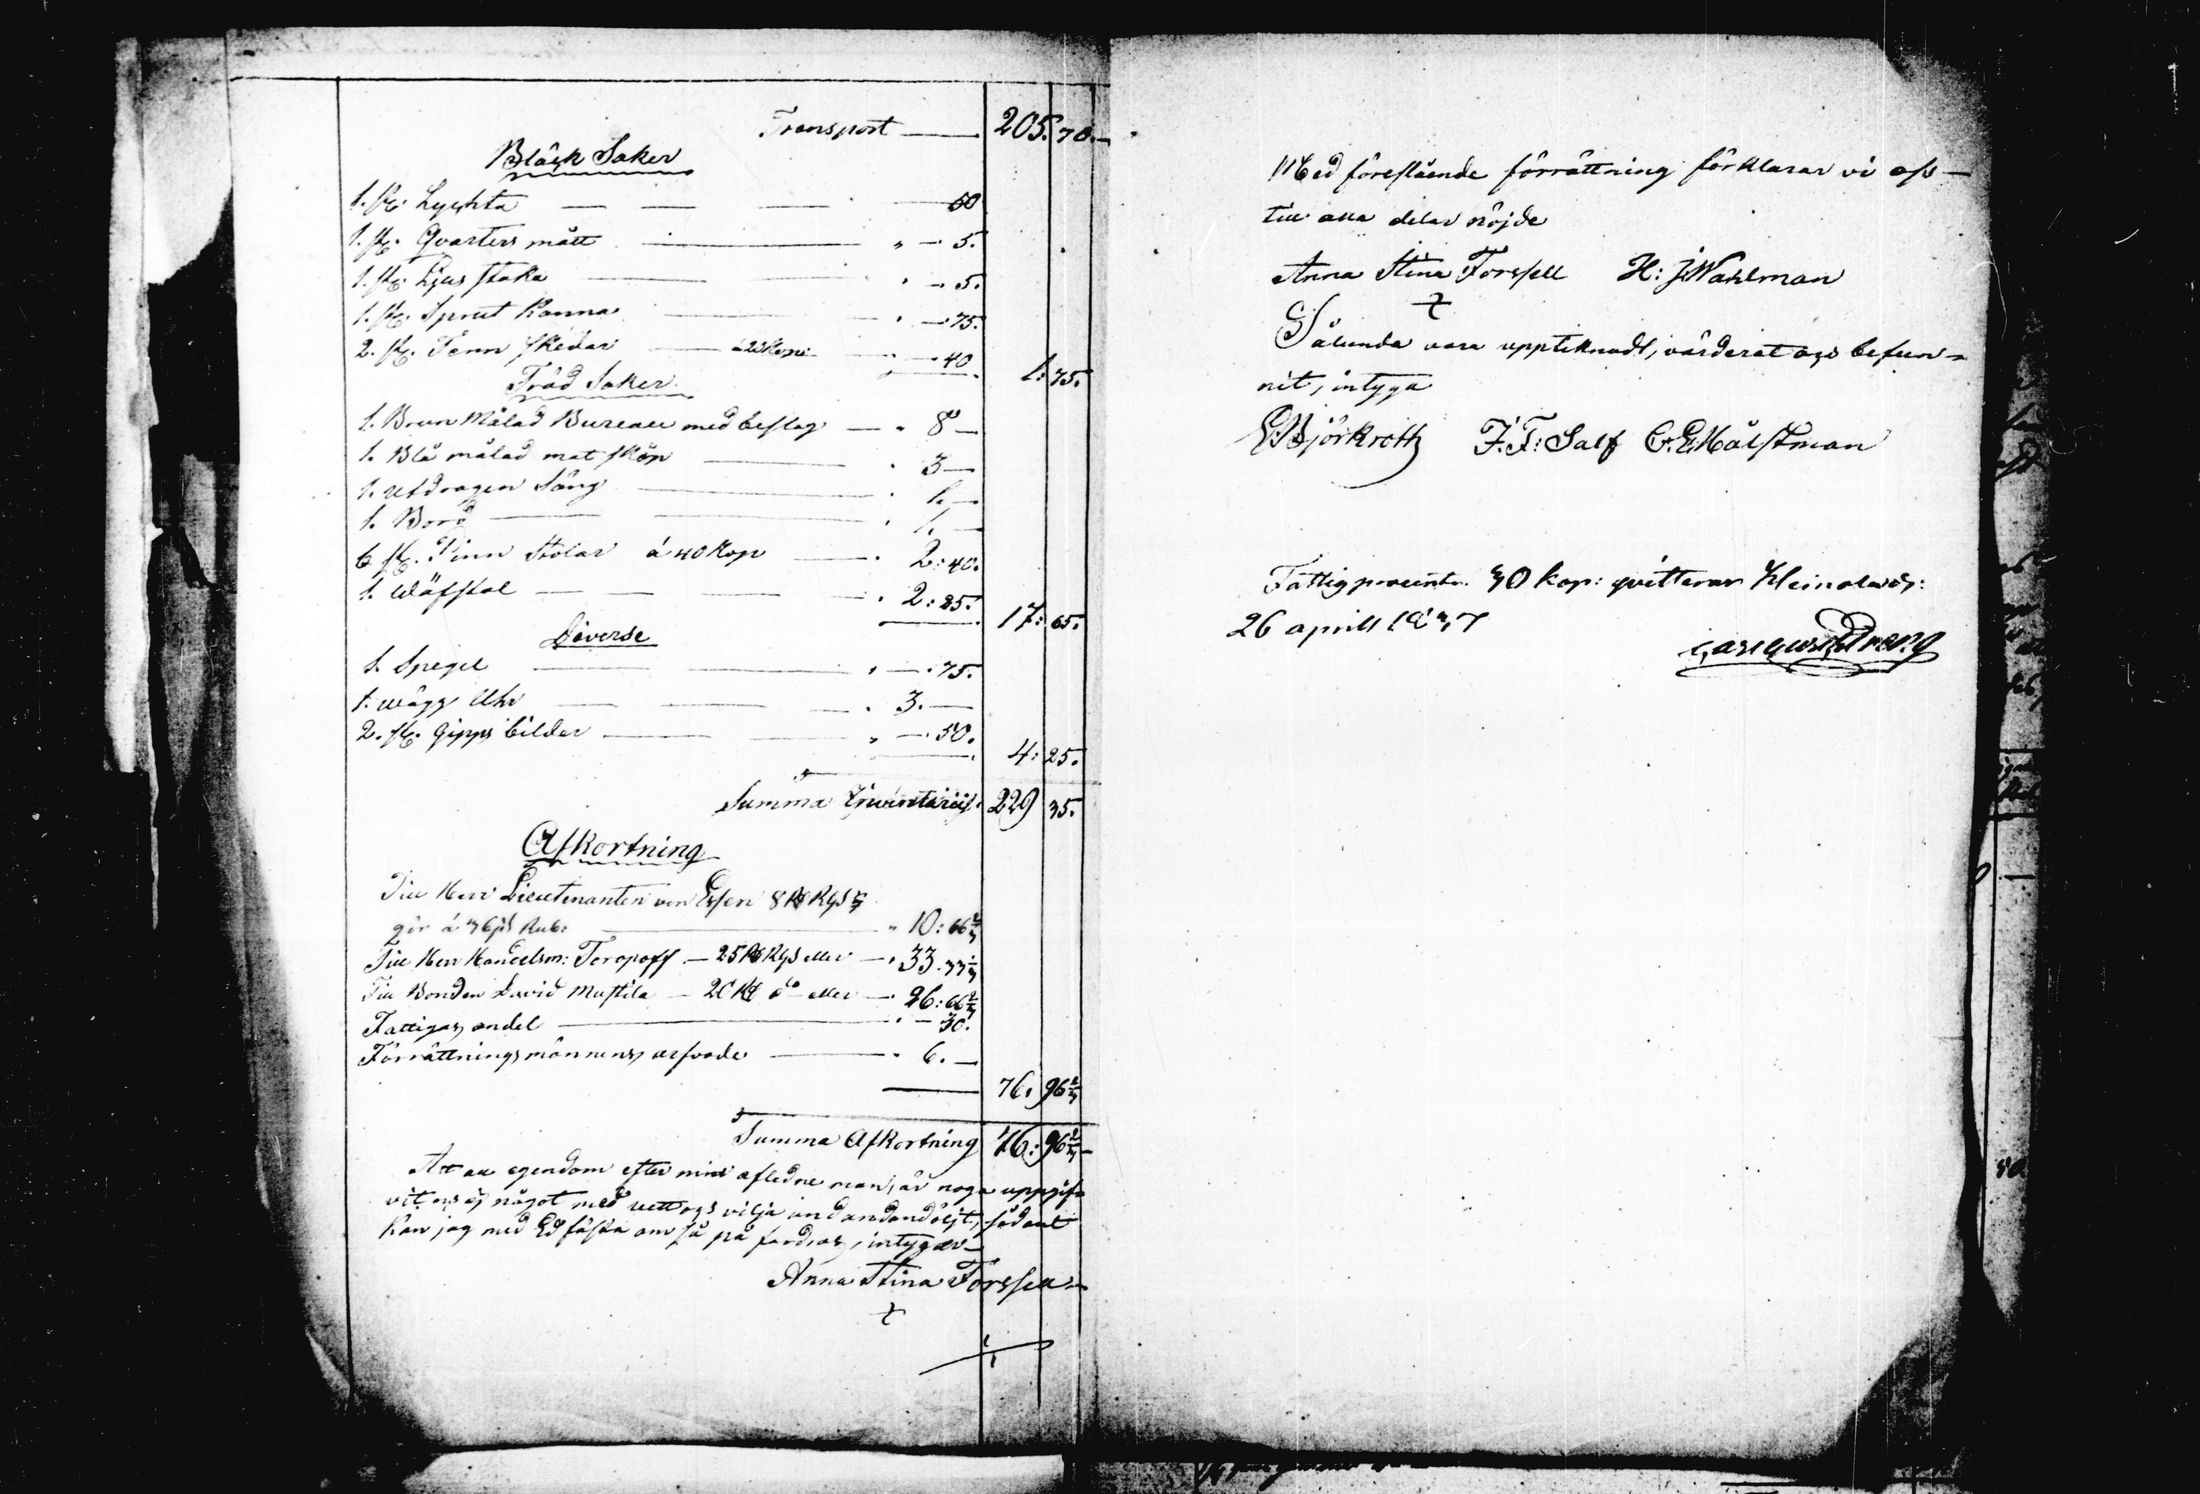 Transport — 205. 70.
Bläck Saker
1. st. Lyckta — 50
1. st. Qvarters mått " — 5.
1. st. Ljus staka " — 5.
1. st. Sprut Kanna " — 75.
2. st. Tenn skedar — " — 40 1: 75.
Träd Saker
1. Brun Målad Bureau med beslag — " 8 —
1. Blå målad mat skåp " 3 —
1. utdragen Säng " 1. —
1. Bord " 1. —
6 st. Pinn Stolar á 40 Kop — " 2: 40.
1. Wäfstol — " 2: 25. 17: 65.
Diverse
1. Spegel " — 75.
1. wägg Uhr — " 3. —
2. st. Gipps bilder — " — 50. 4: 25.
Summa Inventarii 229 35.
Afkortning
Till Herr Lieutenanten von Essen 8
gör á Rub: " 10: 66 2/3
Till Herr Handelsm: Toropoff — 25 eller — " 33. 33 1/3
Till Bonden David Mustila — 20 do eller — " 26: 66 2/3
Fattigas andel " — 30.
Förrättningsmännens arfvode " 6. —
76. 96 2/3
Summa Afkortning 76: 96 2/3
Att all egendom efter min afledne man, är noga uppgif=
vit och ej något med vett och vilja undandöljt, sådant
kan jag med Ed fästa om så på fordras, intygar —
Anna Stina Forssell
Med förestående förrättning förklarar vi oss —
till alla delar nöjde
Anna Stina Forssell H: J: Wahlman
Sålunda vara uppteknadt, värderat och befun=
nit, intyga
Björkroth F. F: Salf C. E. Malstman
Fattigprocent. 30 kop: qvitterar Heinola
26 april